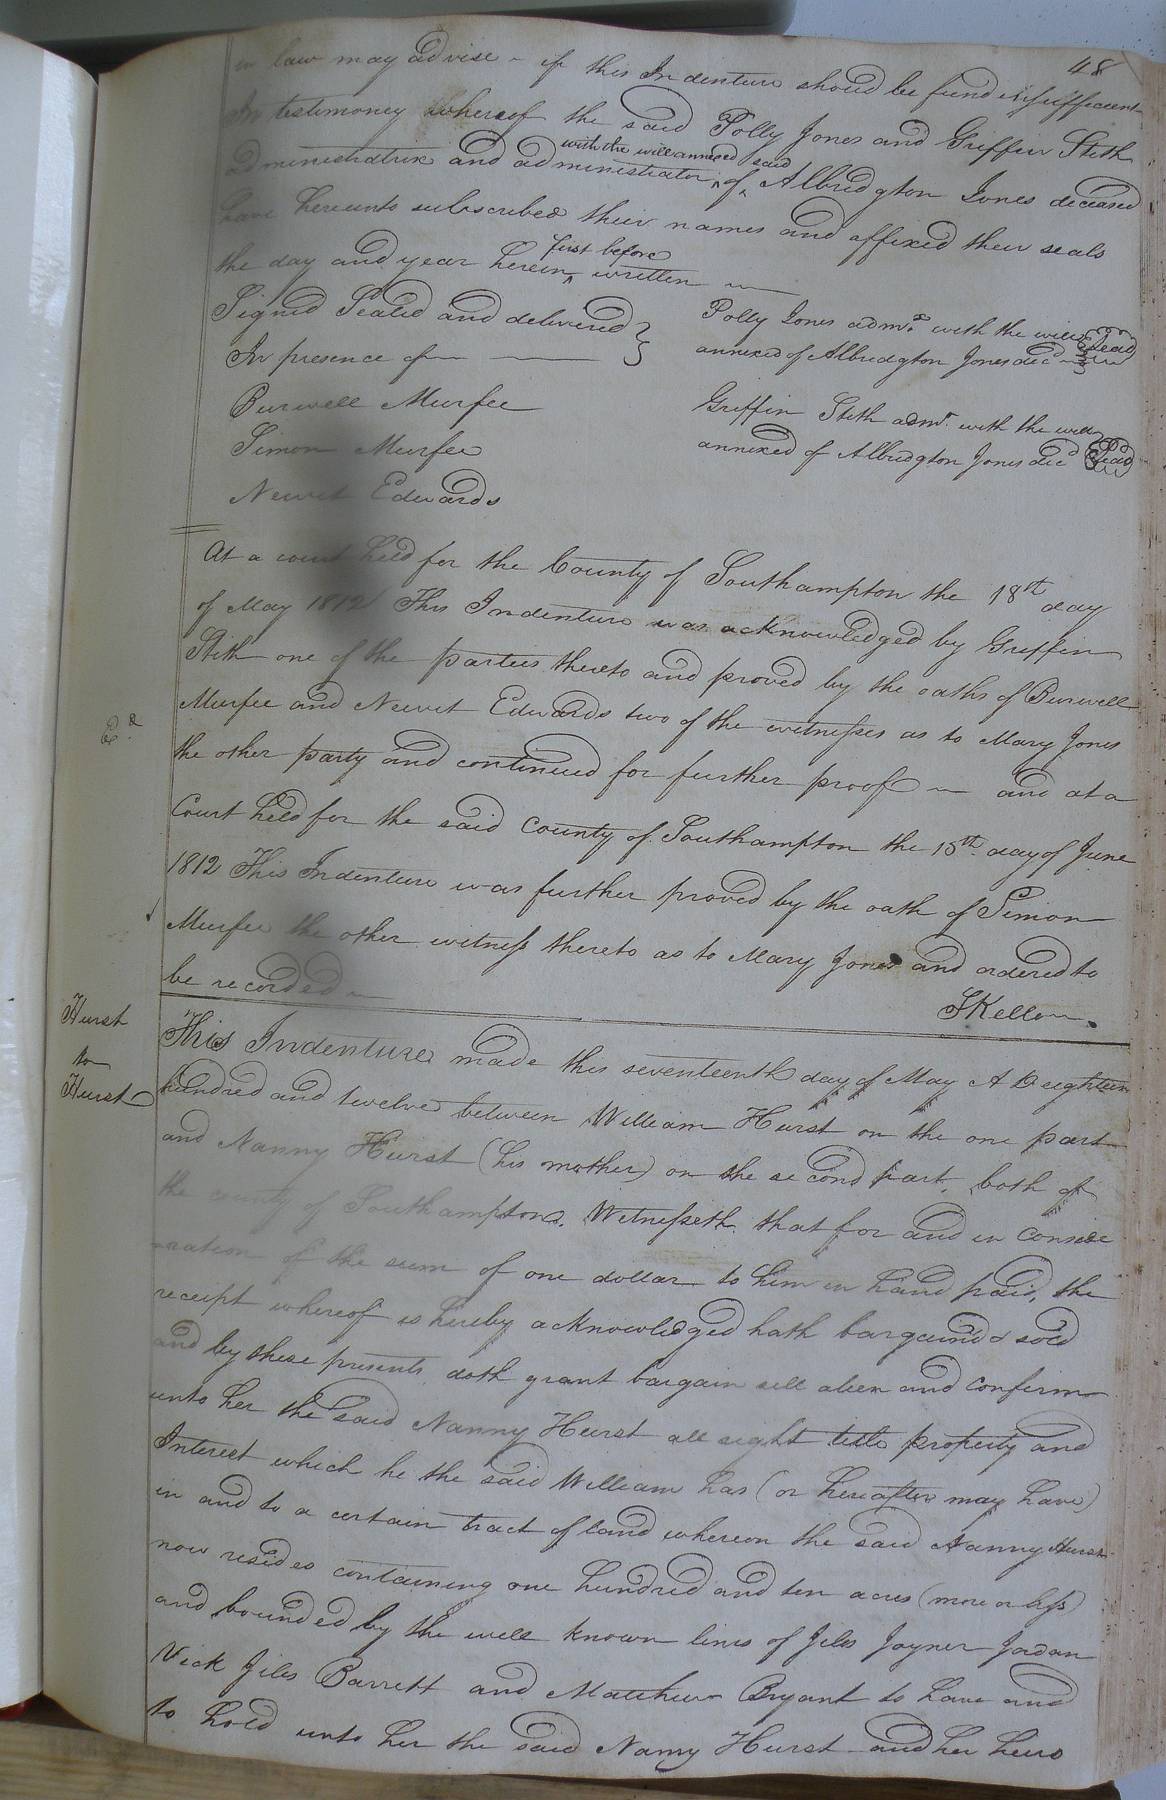 48
in law may advise - if this Indenture should be fund insufficient
In testimony whereof the said Polly Jones and Griffin Stith
with the will annexed said
administratrix and administrator ^ of ^ Albridgton Jones deceased
have hereunto subscribed their names and affixed their seals
first before
the day and year herein ^ written
Signed Sealed and delivered }
In presence of
Polly Jones admx. with the will
annexed of Albridgton Jones decd Seal
Burwell Murfee
Simon Murfee
Newit Edwards
Griffin Stith admr. with the will
annexed of Albridgton Jones decd Seal
At a court held for the County of Southampton the 18th day
of May 1812 This Indenture was acknowledged by Griffin
Stith one of the parties thereto and proved by the oaths of Burwell
Murfee and Newit Edwards two of the witnesses as to Mary Jones
Ed.
the other party and continued for further proof and at a
Court held for the said County of Southampton the 15th day of June
1812 This Indenture was further proved by the oath of Simon
Murfee the other witness thereto as to Mary Jones and ordered to
be recorded
SKello
Hurst
to
Hurst
This Indenture made this seventeenth day of May A D eighteen
hundred and twelve between William Hurst on the one part
and Nanny Hurst (his mother) on the second part, both of
the county of Southampton. Witnesseth, that for and in conside
-ration of the sum of one dollar to him in hand paid, the
receipt whereof is hereby acknowledged hath bargain'd & sold
and by these presents doth grant bargain sell alien and confirm
unto her the said Nanny Hurst all right title property and
Interest which he the said William has (or hereafter may have)
in and to a certain tract of land whereon the said Nanny Hurst
now resides containing one hundred and ten acres (more or less)
and bounded by the well known lines of Jiles Joyner Jordan
Vick Jiles Barrett and Matthew Bryant to have and
to hold unto her the said Nanny Hurst and her heirs